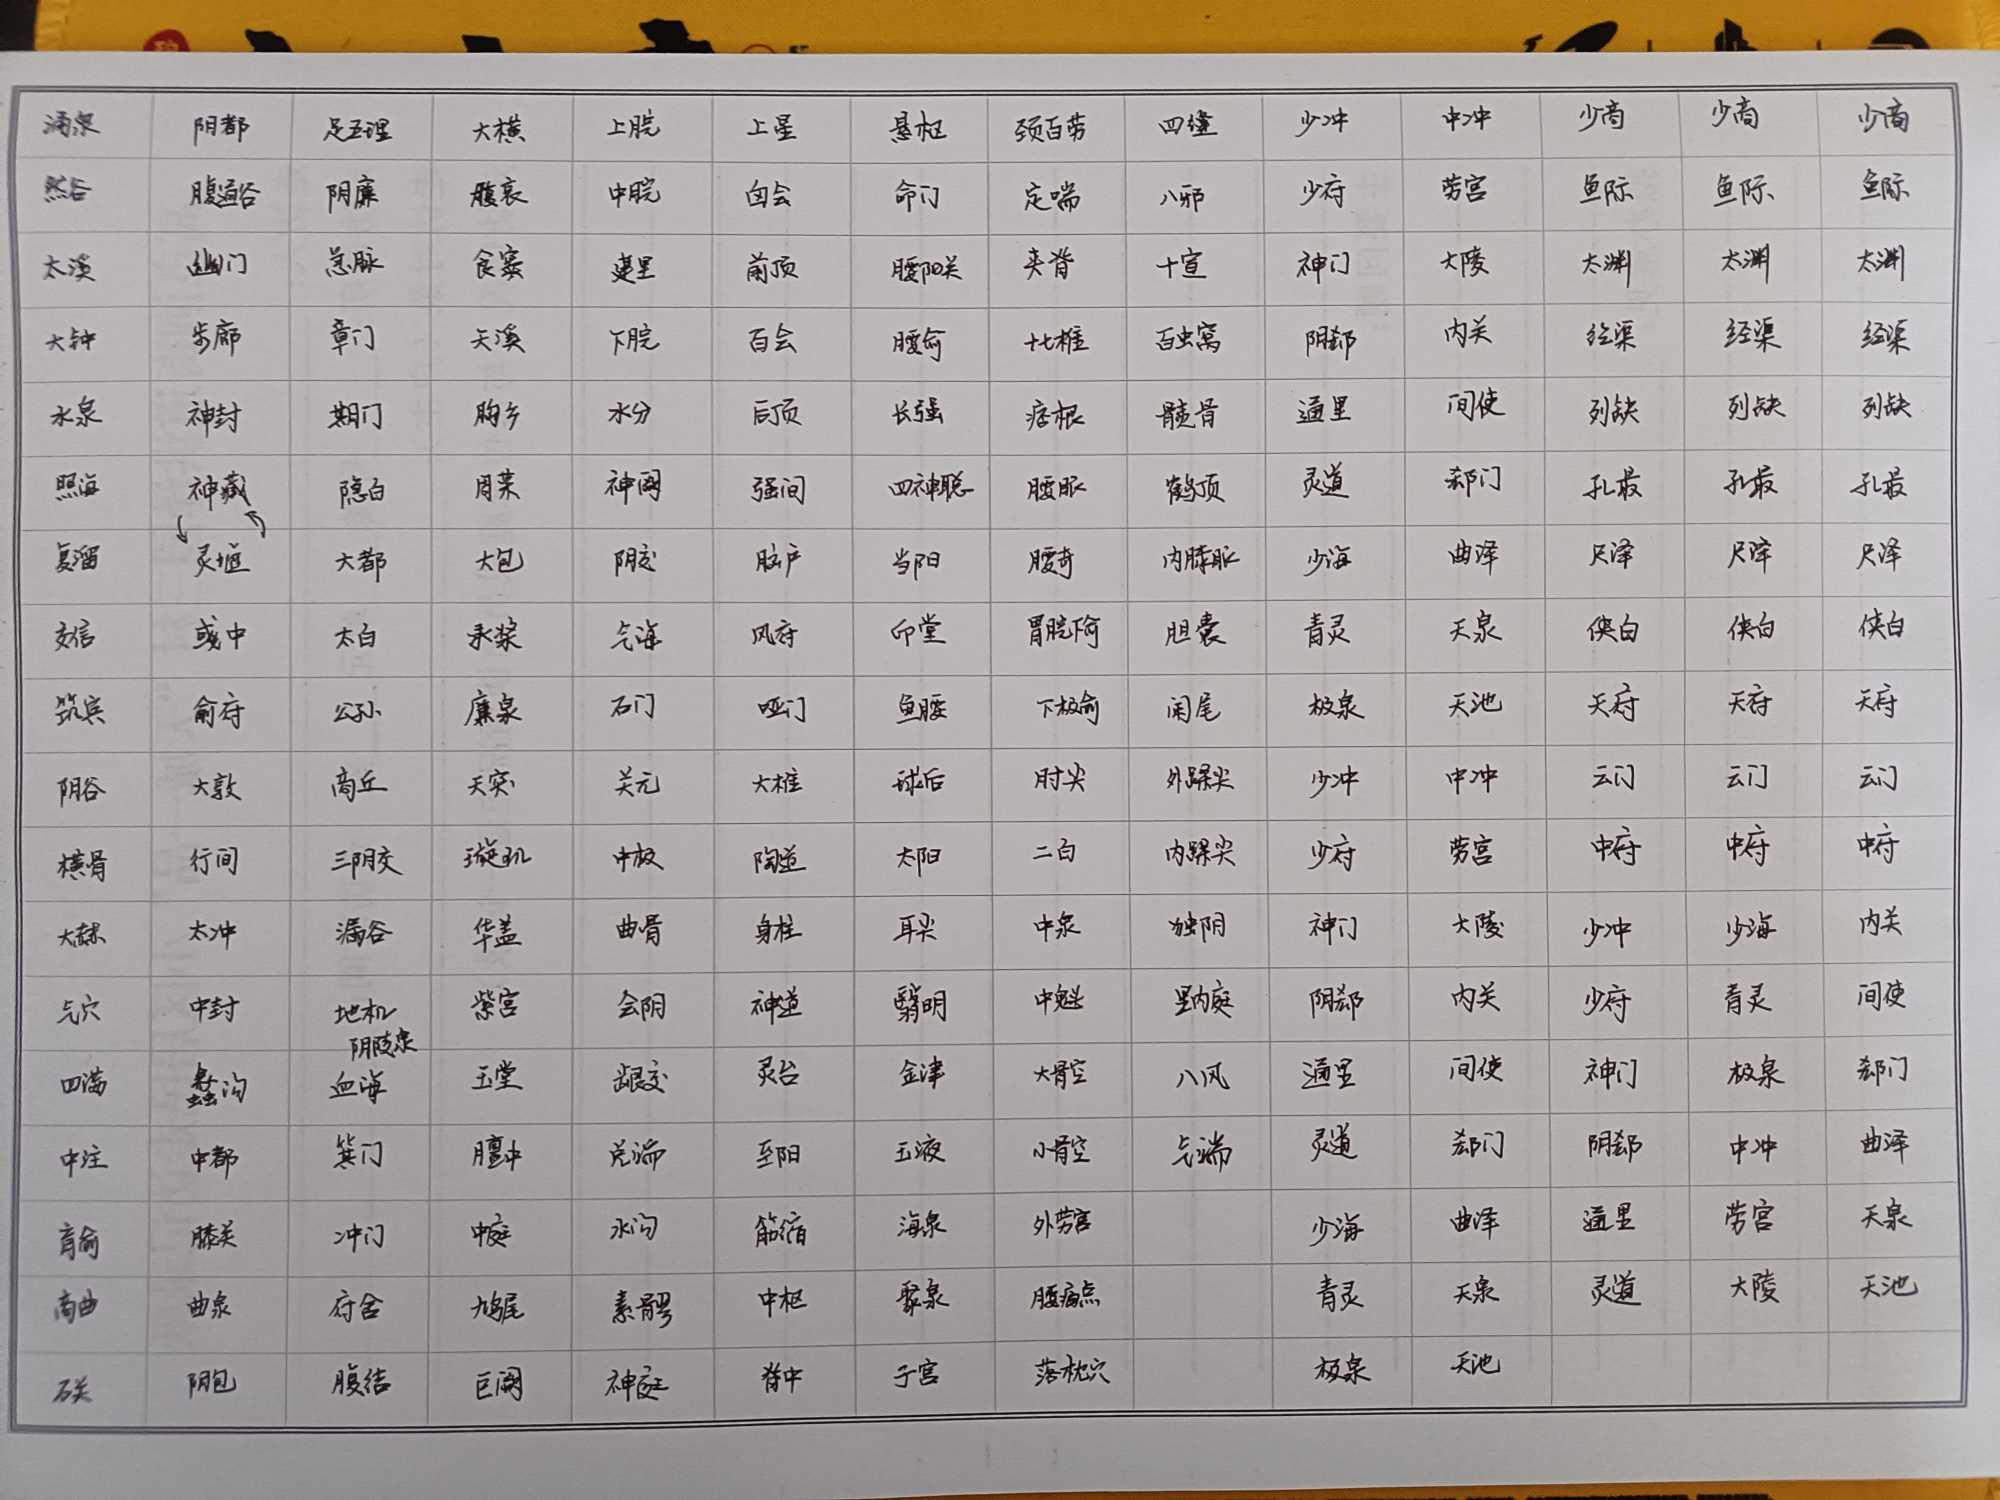 涌泉 阴都 足五里 大横 上脘 上星 悬枢 颈百劳 四缝 少冲 中冲 少商 少商 少商
然谷 腹通谷 阴廉 腹哀 中脘 囟会 命门 定喘 八邪 少府 劳宫 鱼际 鱼际 鱼际
太溪 幽门 急脉 食窦 建里 前顶 腰阳关 夹脊 十宣 神门 大陵 太渊 太渊 太渊
大钟 步廊 章门 天溪 下脘 百会 腰俞 十七椎 百虫窝 阴郄 内关 经渠 经渠 经渠
水泉 神封 期门 胸乡 水分 后顶 长强 痞根 髋骨 通里 间使 列缺 列缺 列缺
照海 神藏 隐白 周荣 神阙 强间 四神聪 腰眼 鹤顶 灵道 郄门 孔最 孔最 孔最
复溜 灵墟 大都 大包 阴交 脑户 当阳 腰奇 内膝眼 少海 曲泽 尺泽 尺泽 尺泽
交信 彧中 太白 承浆 气海 风府 印堂 胃脘下俞 胆囊 青灵 天泉 侠白 侠白 侠白
筑宾 俞府 公孙 廉泉 石门 哑门 鱼腰 下极俞 阑尾 极泉 天池 天府 天府 天府
阴谷 大敦 商丘 天突 关元 大椎 球后 肘尖 外踝尖 少冲 中冲 云门 云门 云门
横骨 行间 三阴交 璇玑 中极 陶道 太阳 二白 内踝尖 少府 劳宫 中府 中府 中府
大赫 太冲 漏谷 华盖 曲骨 身柱 耳尖 中泉 独阴 神门 大陵 少冲 少海 内关
气穴 中封 地机 紫宫 会阴 神道 翳明 中魁 里内庭 阴郄 内关 少府 青灵 间使
阴陵泉
四满 蠡沟 血海 玉堂 龈交 灵台 金津 大骨空 八风 通里 间使 神门 极泉 郄门
中注 中都 箕门 膻中 兑端 至阳 玉液 小骨空 气端 灵道 郄门 阴郄 中冲 曲泽
肓俞 膝关 冲门 中庭 水沟 筋缩 海泉 外劳宫 少海 曲泽 通里 劳宫 天泉
商曲 曲泉 府舍 鸠尾 素髎 中枢 聚泉 腰痛点 青灵 天泉 灵道 大陵 天池
石关 阴包 腹结 巨阙 神庭 脊中 子宫 落枕穴 极泉 天池